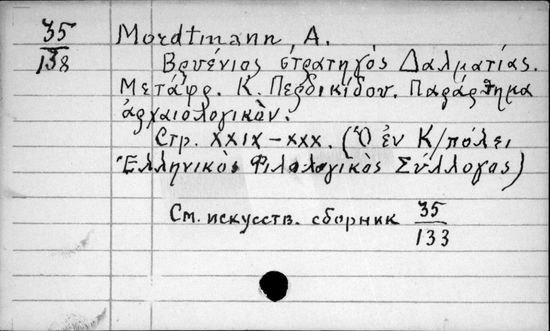 35
138
Mordtmann, A.
Βρυένιος στρατηγὸς Δαλματίας.
Μετάφρ. Κ. Περδικίδου. Παράρτημα
ἀρχαιολογικὸν.
Στρ. XXIX-XXX. (Ὁ ἐν Κ/πόλει
Ἑλληνικὸς Φιλολογικὸς Σύλλογος)
См. искусств. сборник 35
133